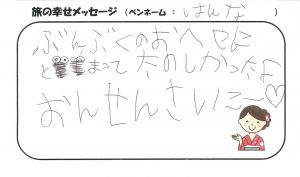 旅の幸せメッセージ（ペンネーム：はんな）
ぶんぶくのおへやに
とまって たのしかったよ
おんせんさいこ〜♡